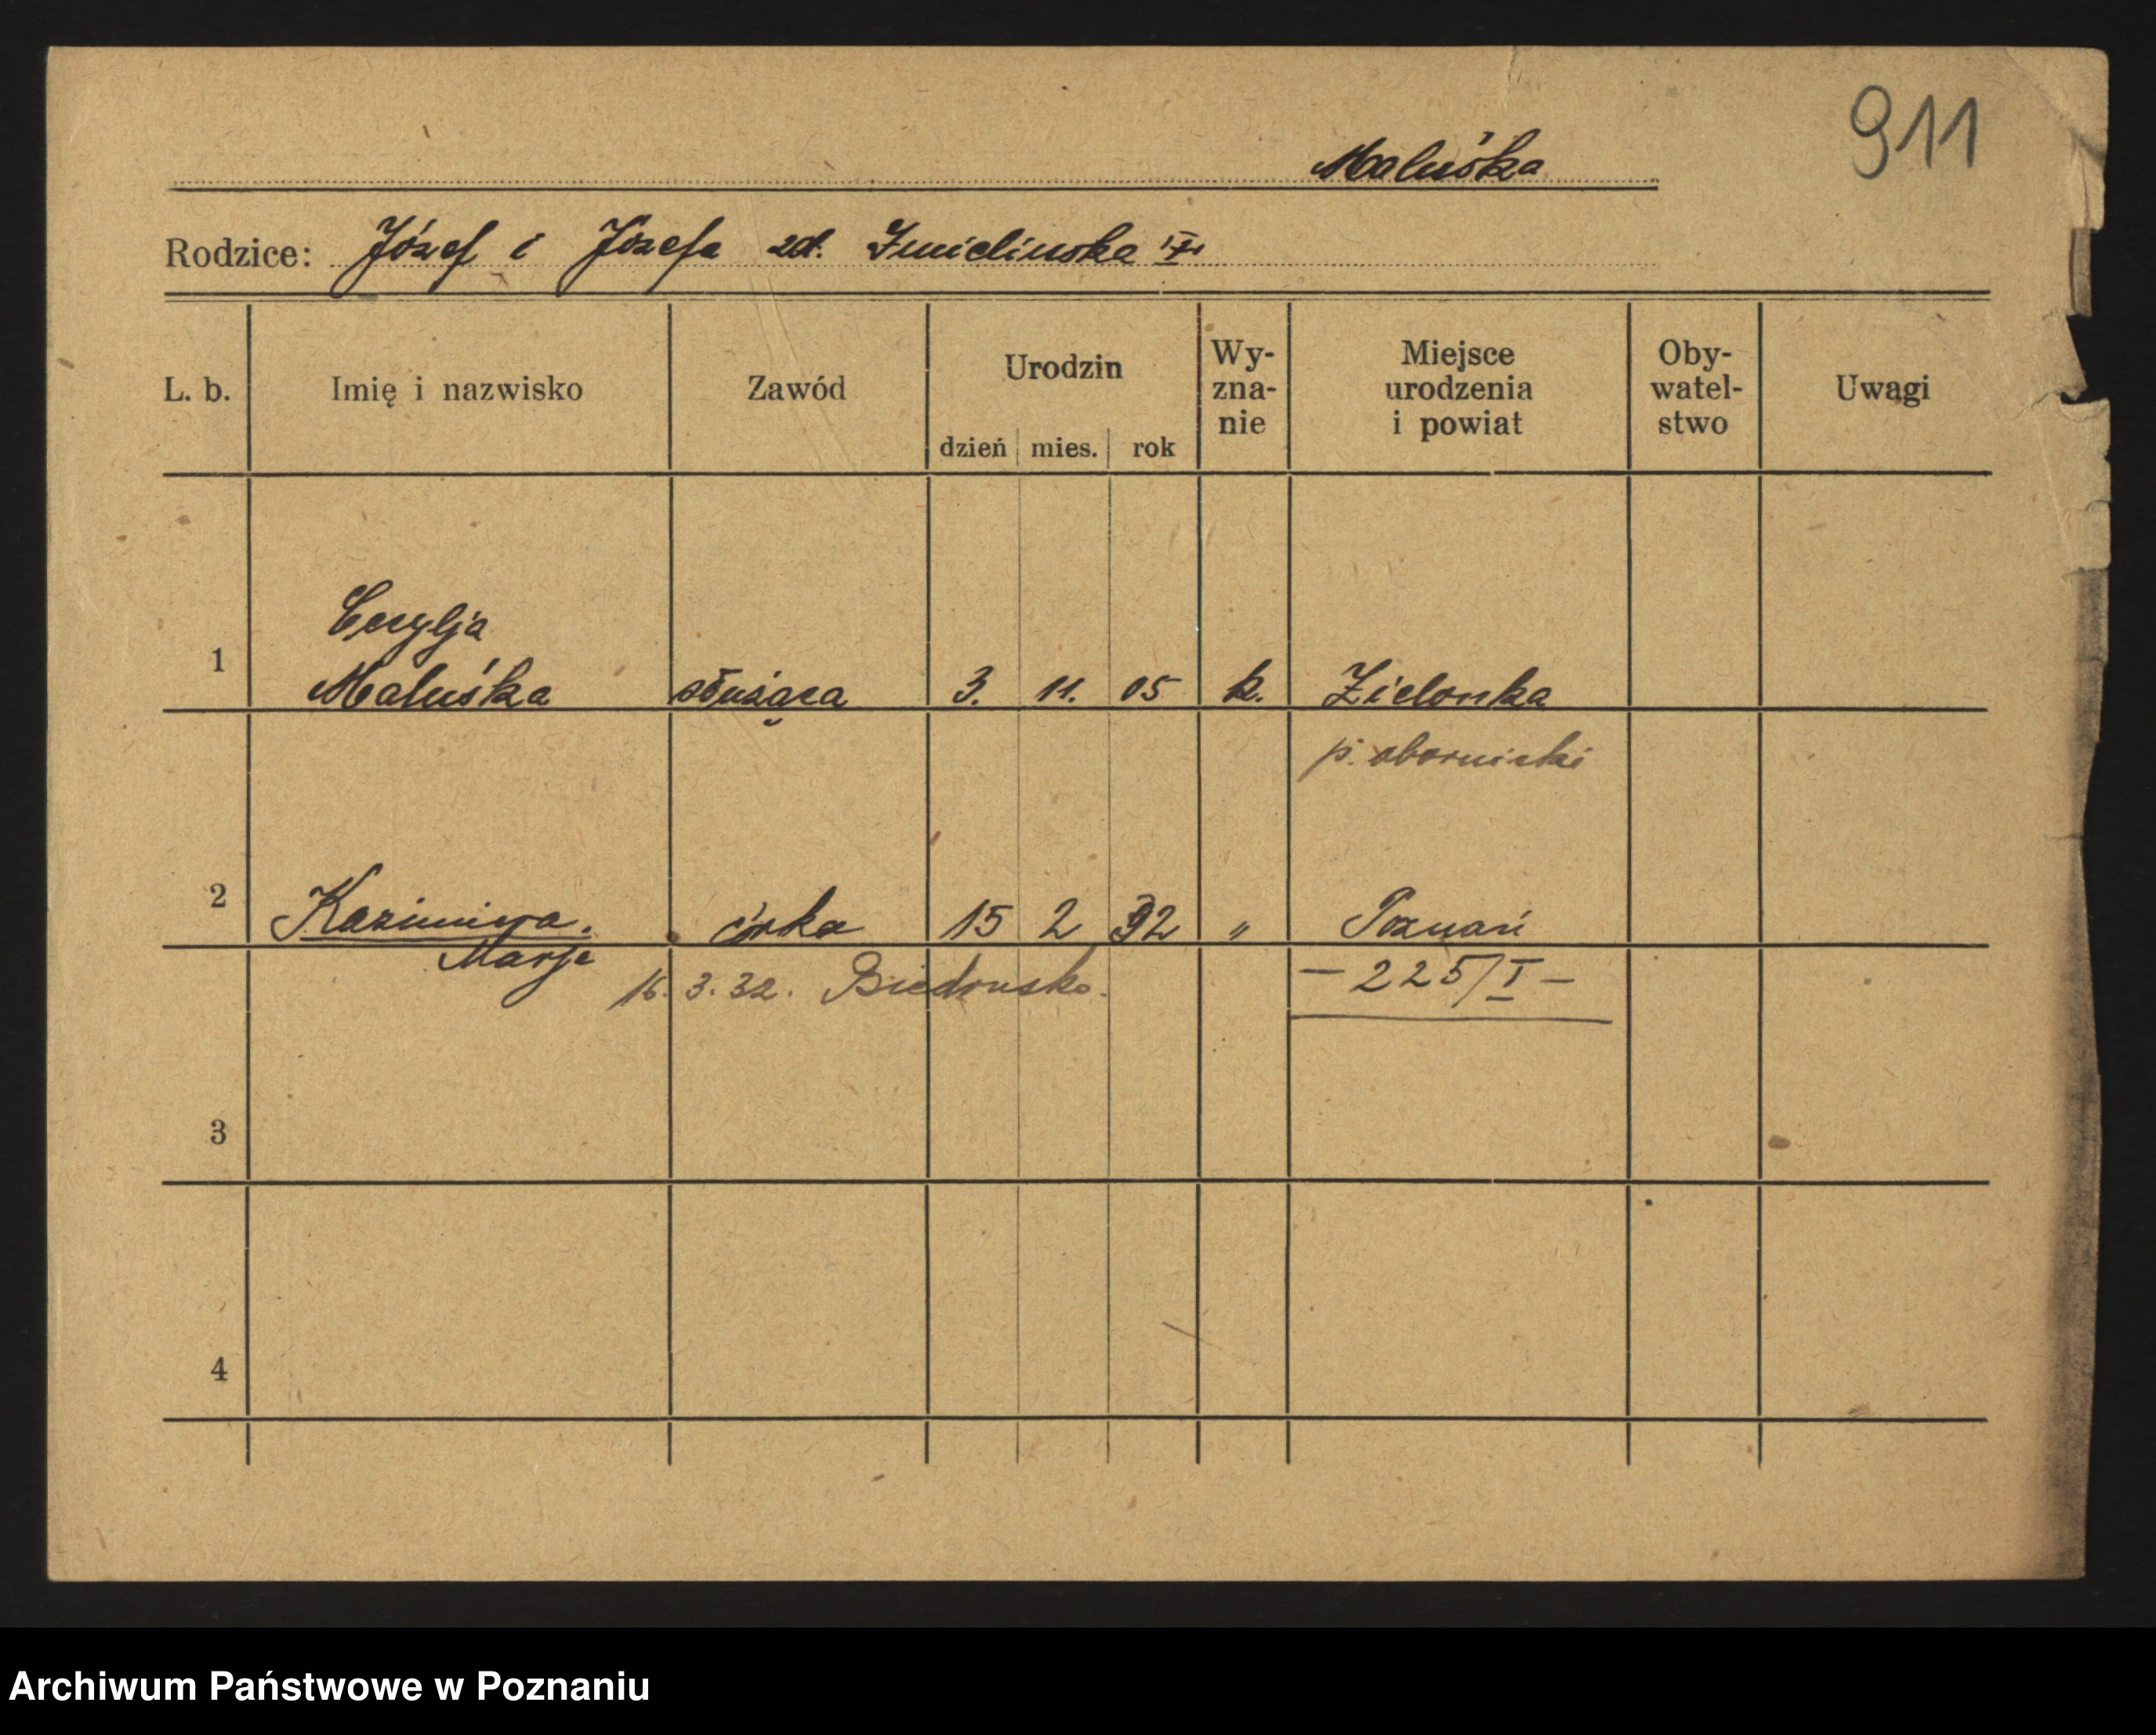 911
Maluśka
Rodzice: Józef i Józefa zd.
L. b. Imię i nazwisko Zawód Urodzin dzień mies. rok Wy-zna-nie Miejsce urodzenia i powiat Oby-watel-stwo Uwagi
Cecylja
1 Maluśka służąca 3. 11. 05 k. Zielonka
p. obornicki
2 Kazimiera. córka 15 2 32 " Poznań
Marja
16. 3. 32. Biedrusko. - 225/I -
3
4
Archiwum Państwowe w Poznaniu